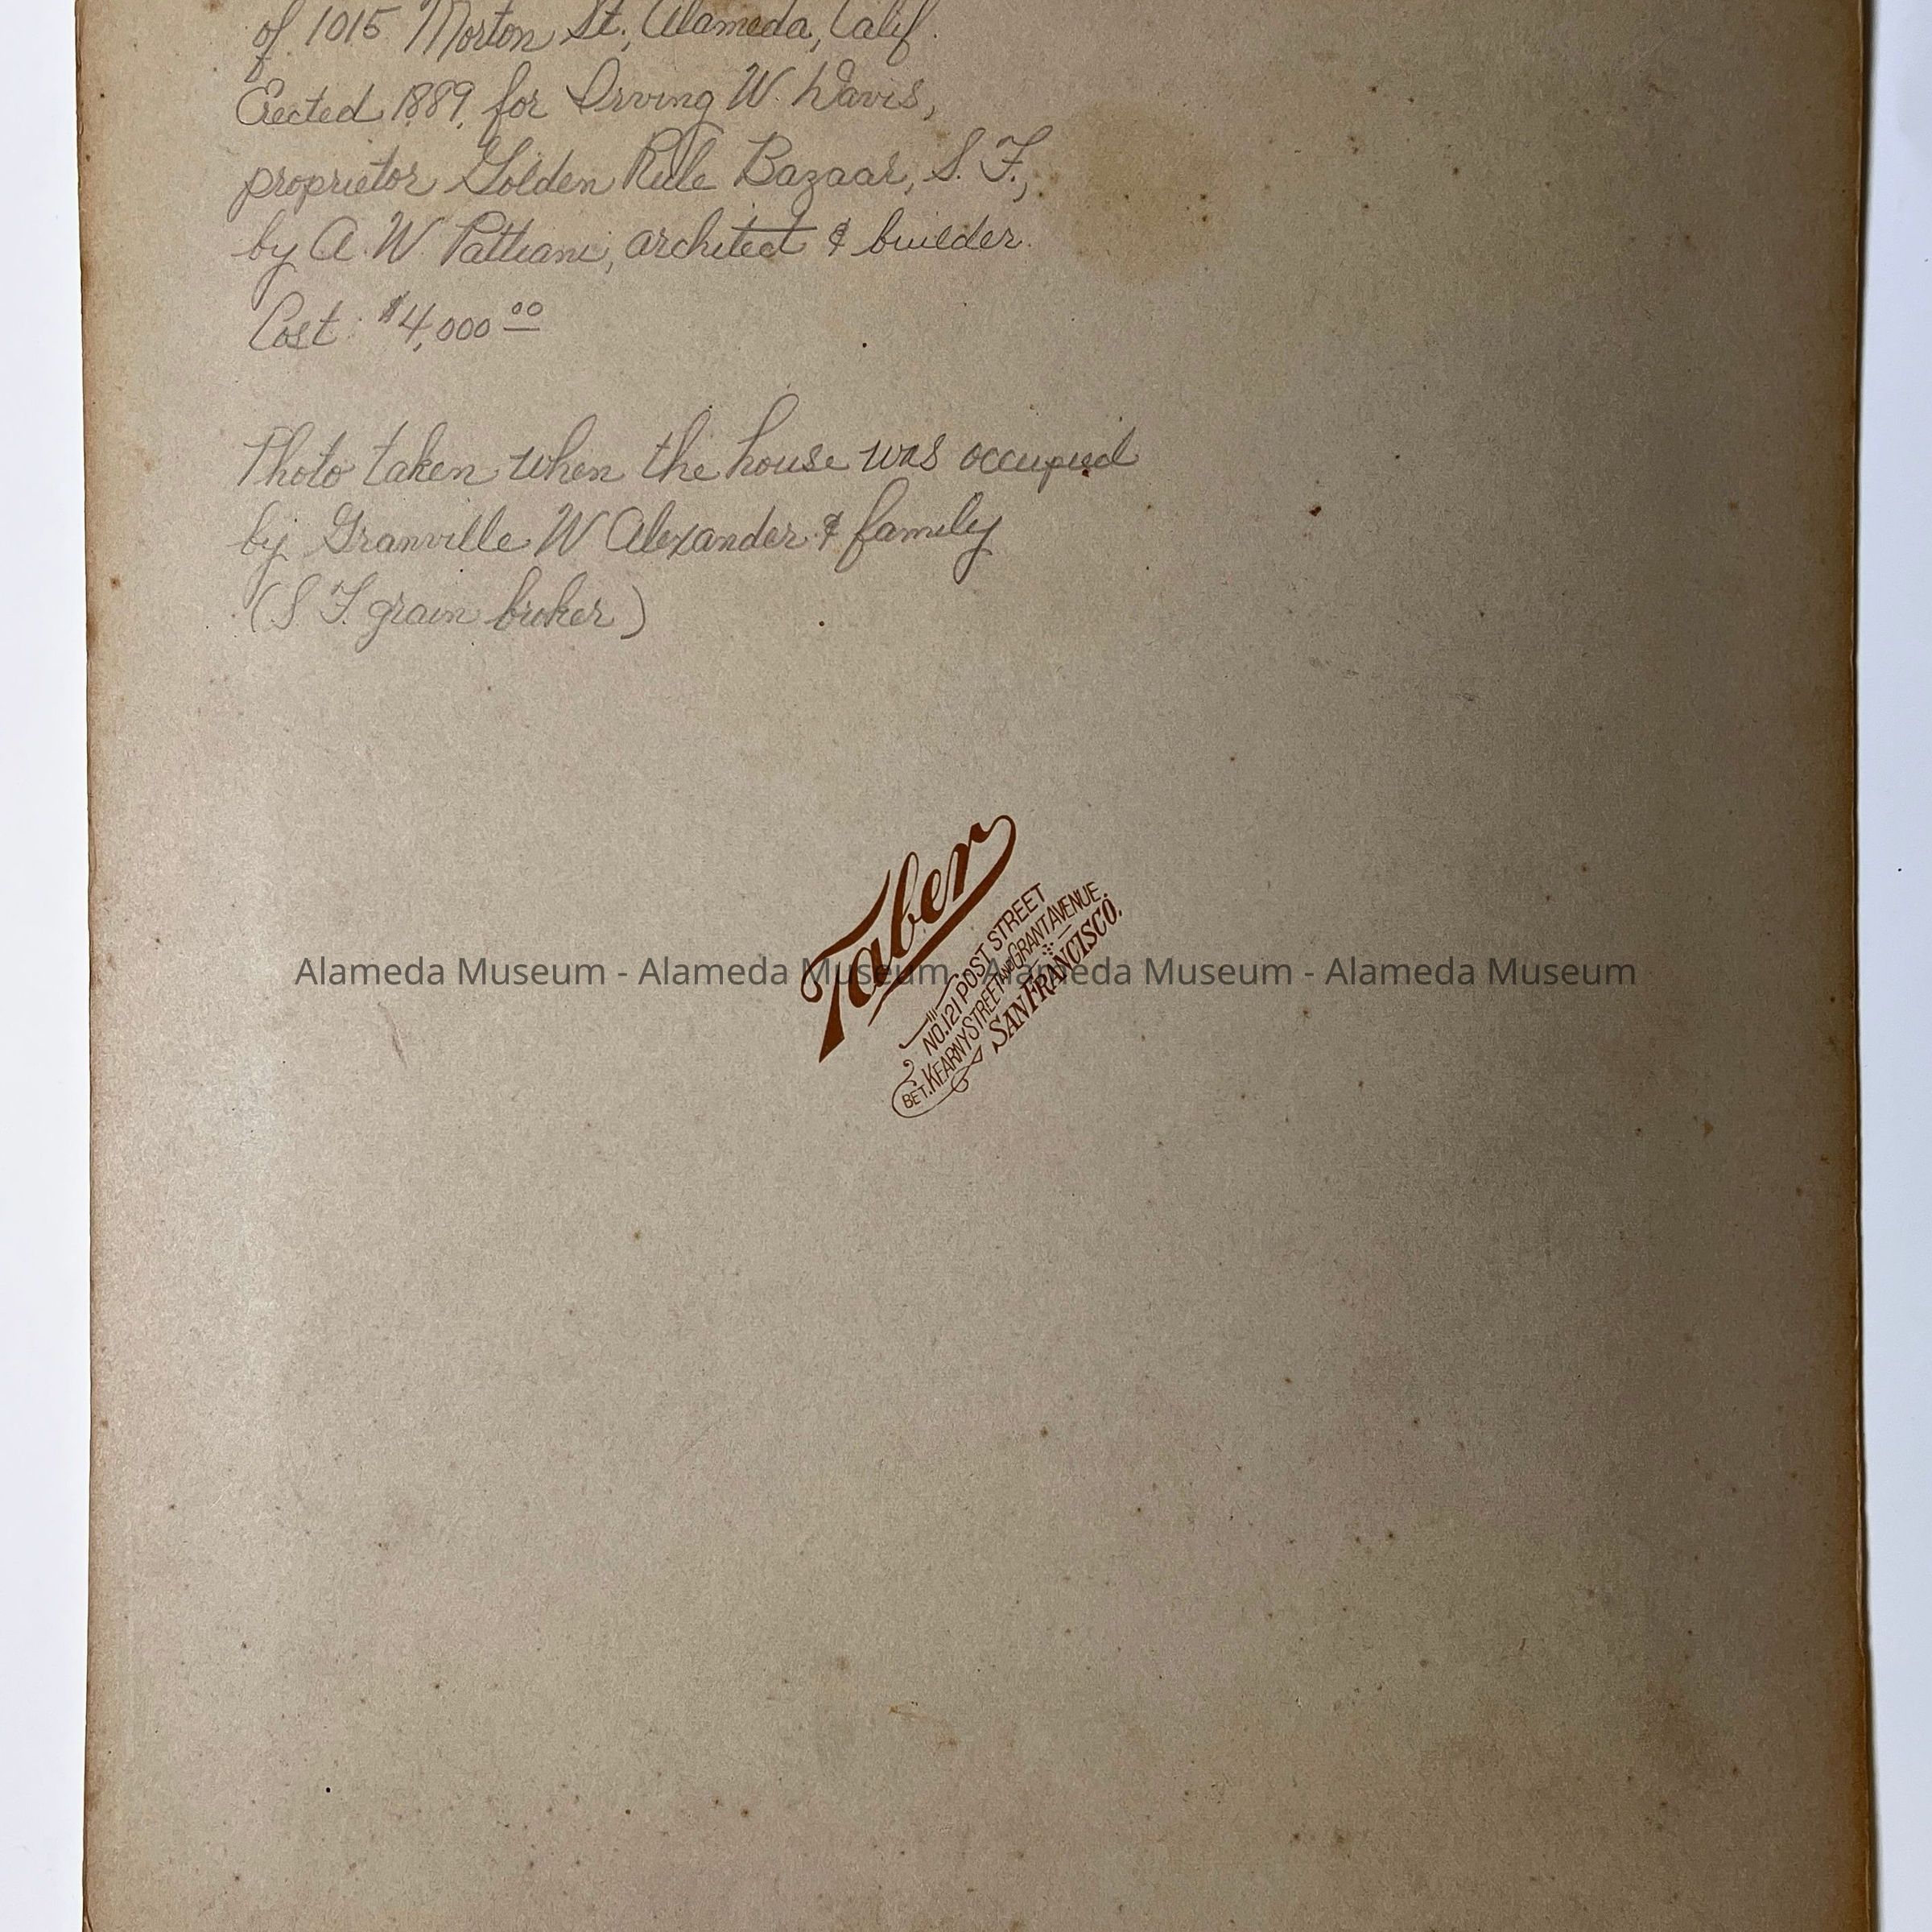 of 1015 Morton St., Alameda, Calif.
Erected 1889, for Irving W. Davis,
proprietor Golden Rule Bazaar, S. F.,
by A. W. Pattiani, architect & builder.
Cost: $4,000 00
Photo taken when the house was occupied
by Granville W Alexander & family
(S F. grain broker)
Taber
NO. 121 POST STREET
BET. KEARNY STREET AND GRANT AVENUE.
SAN FRANCISCO.
Alameda Museum - Alameda Museum - Alameda Museum - Alameda Museum